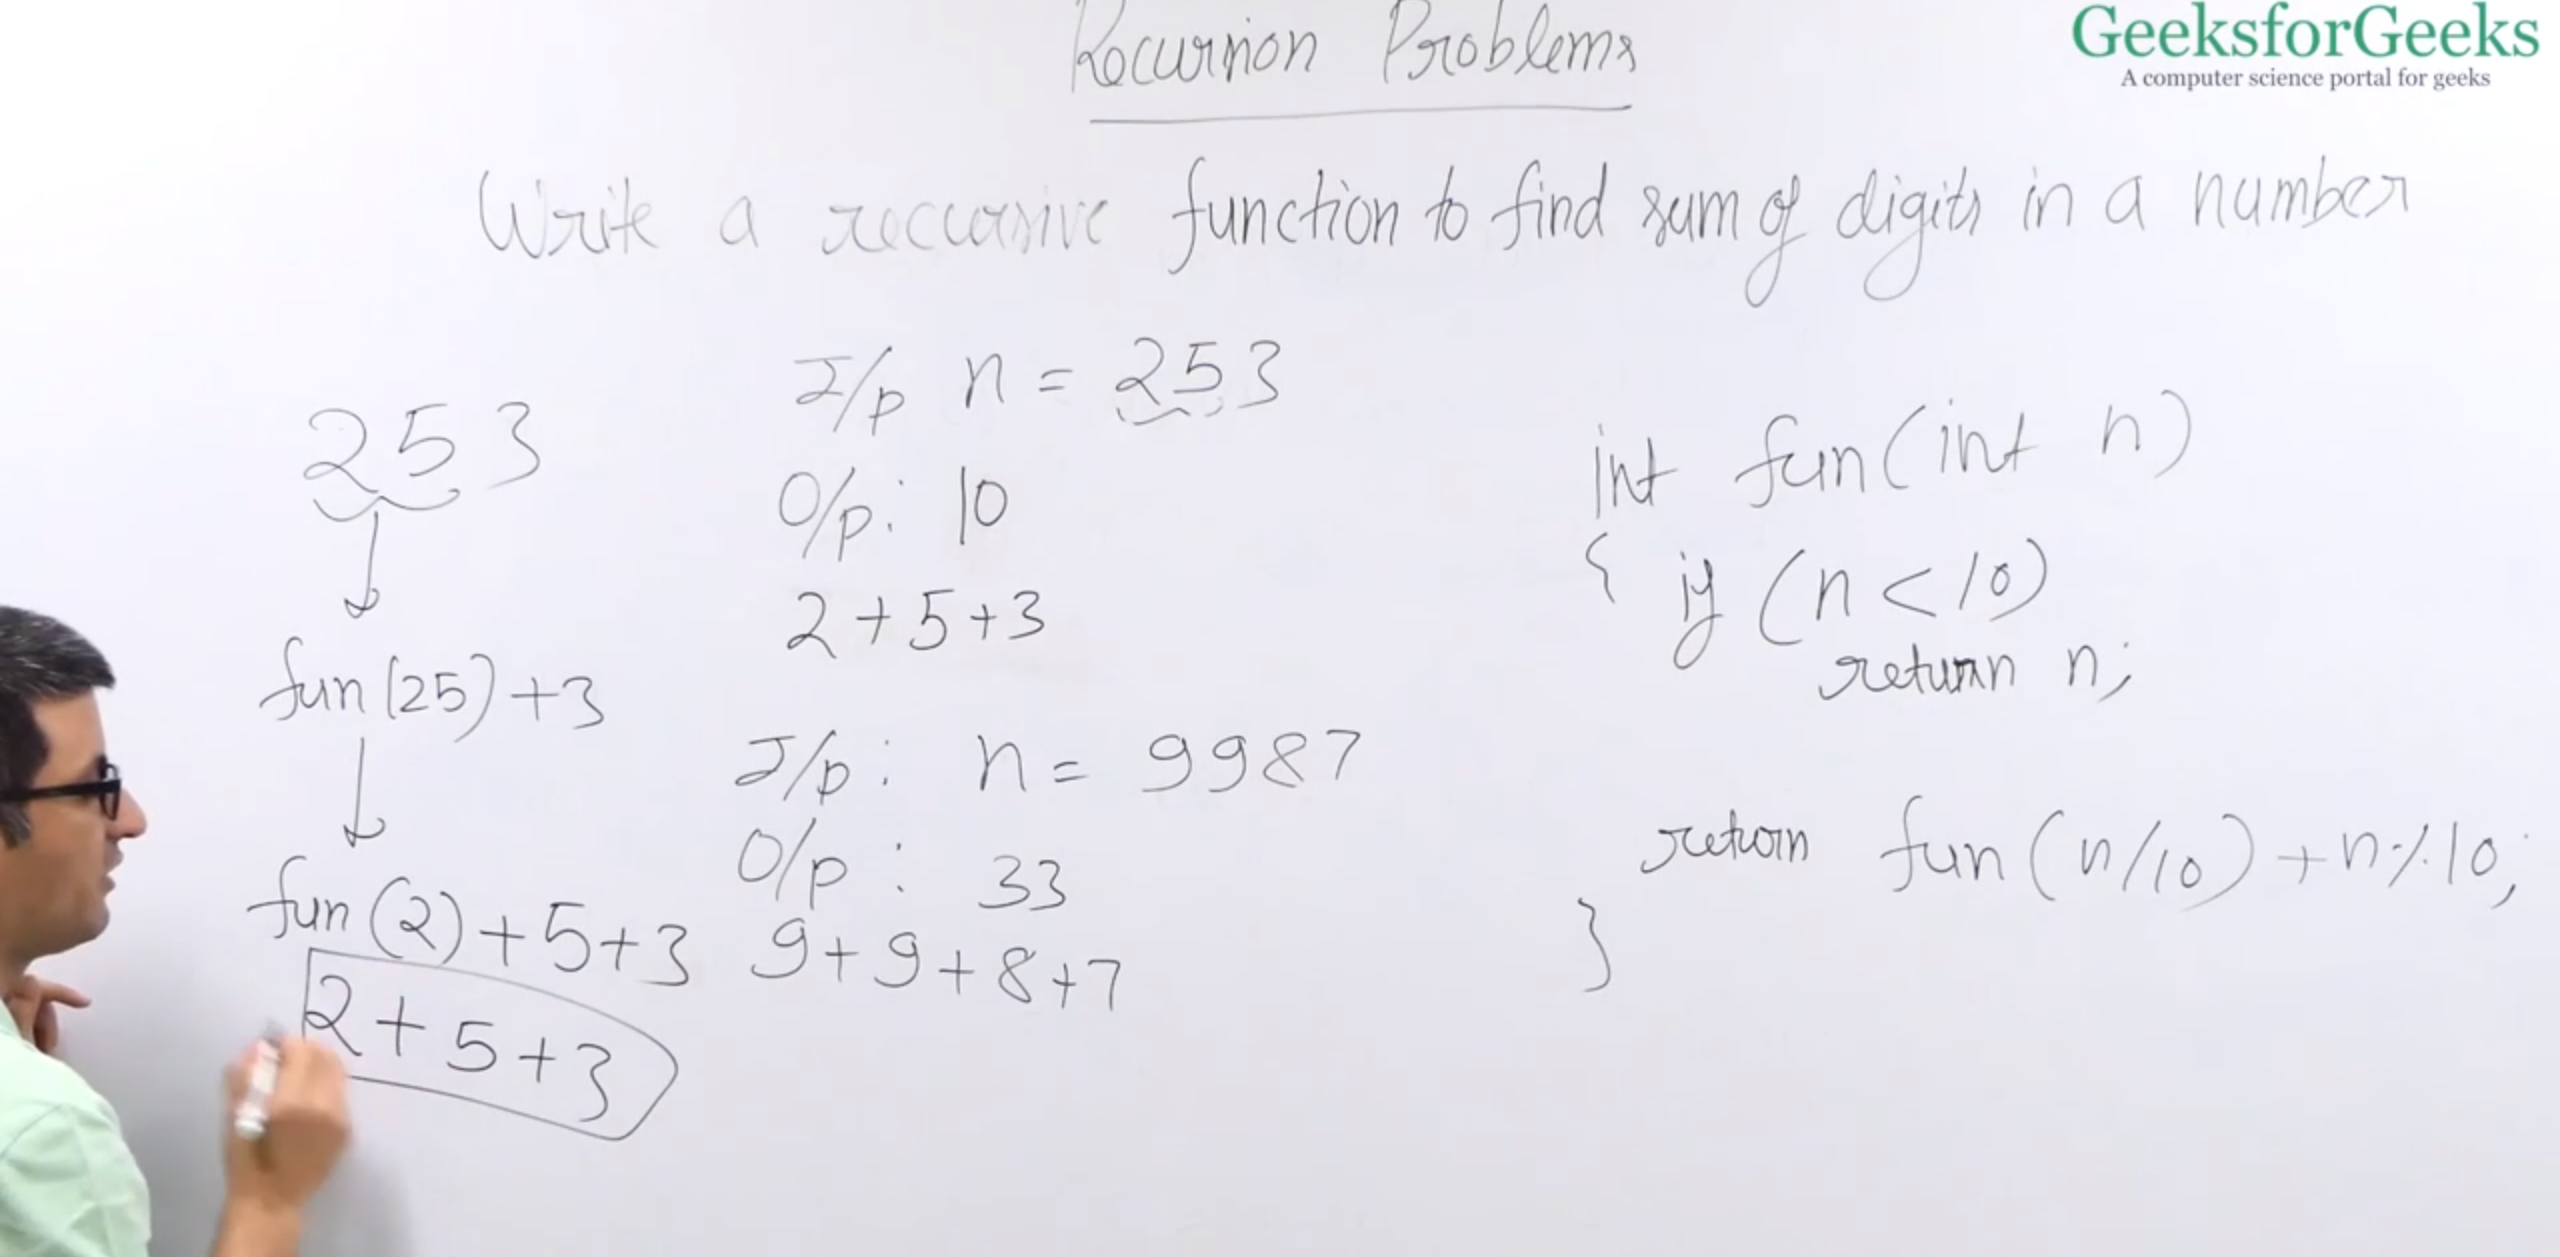 Recursion Problems
GeeksforGeeks
A computer science portal for geeks
Write a recursive function to find sum of digits in a number
253
fun(25)+3
fun(2)+5+3
2+5+3
I/p n = 253
O/p: 10
2+5+3
I/p: n = 9987
O/p: 33
9+9+8+7
int fun(int n)
{ if (n<10)
return n;
return fun(n/10)+n%10;
}